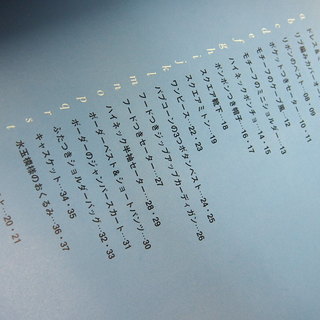 a
b
c
d
e
f
g
h
i
j
k
l
m
n
o
p
q
r
s
t
ドレス&
リブ編みカバー…08・09
リボンのベスト…10・11
ポケットつきセーター
モチーフのケープ風…13
モチーフのミニショルダー…14
ハイネックボンネット…14・15
ポンポンつき帽子…16・17
スクエア靴下…18
スクエアミトン…19
ワンピース…22・23
パプコーンの3つボタンベスト…24・25
フードつきジップアップカーディガン…26
フードつきセーター…27
ハイネック半袖セーター…28・29
ボーダーベスト&ショートパンツ…30
ボーダーのジャンパースカート…31
ふたつきショルダーバッグ…32・33
キャスケット…34・35
水玉模様のおくるみ…36・37
ト…20・21